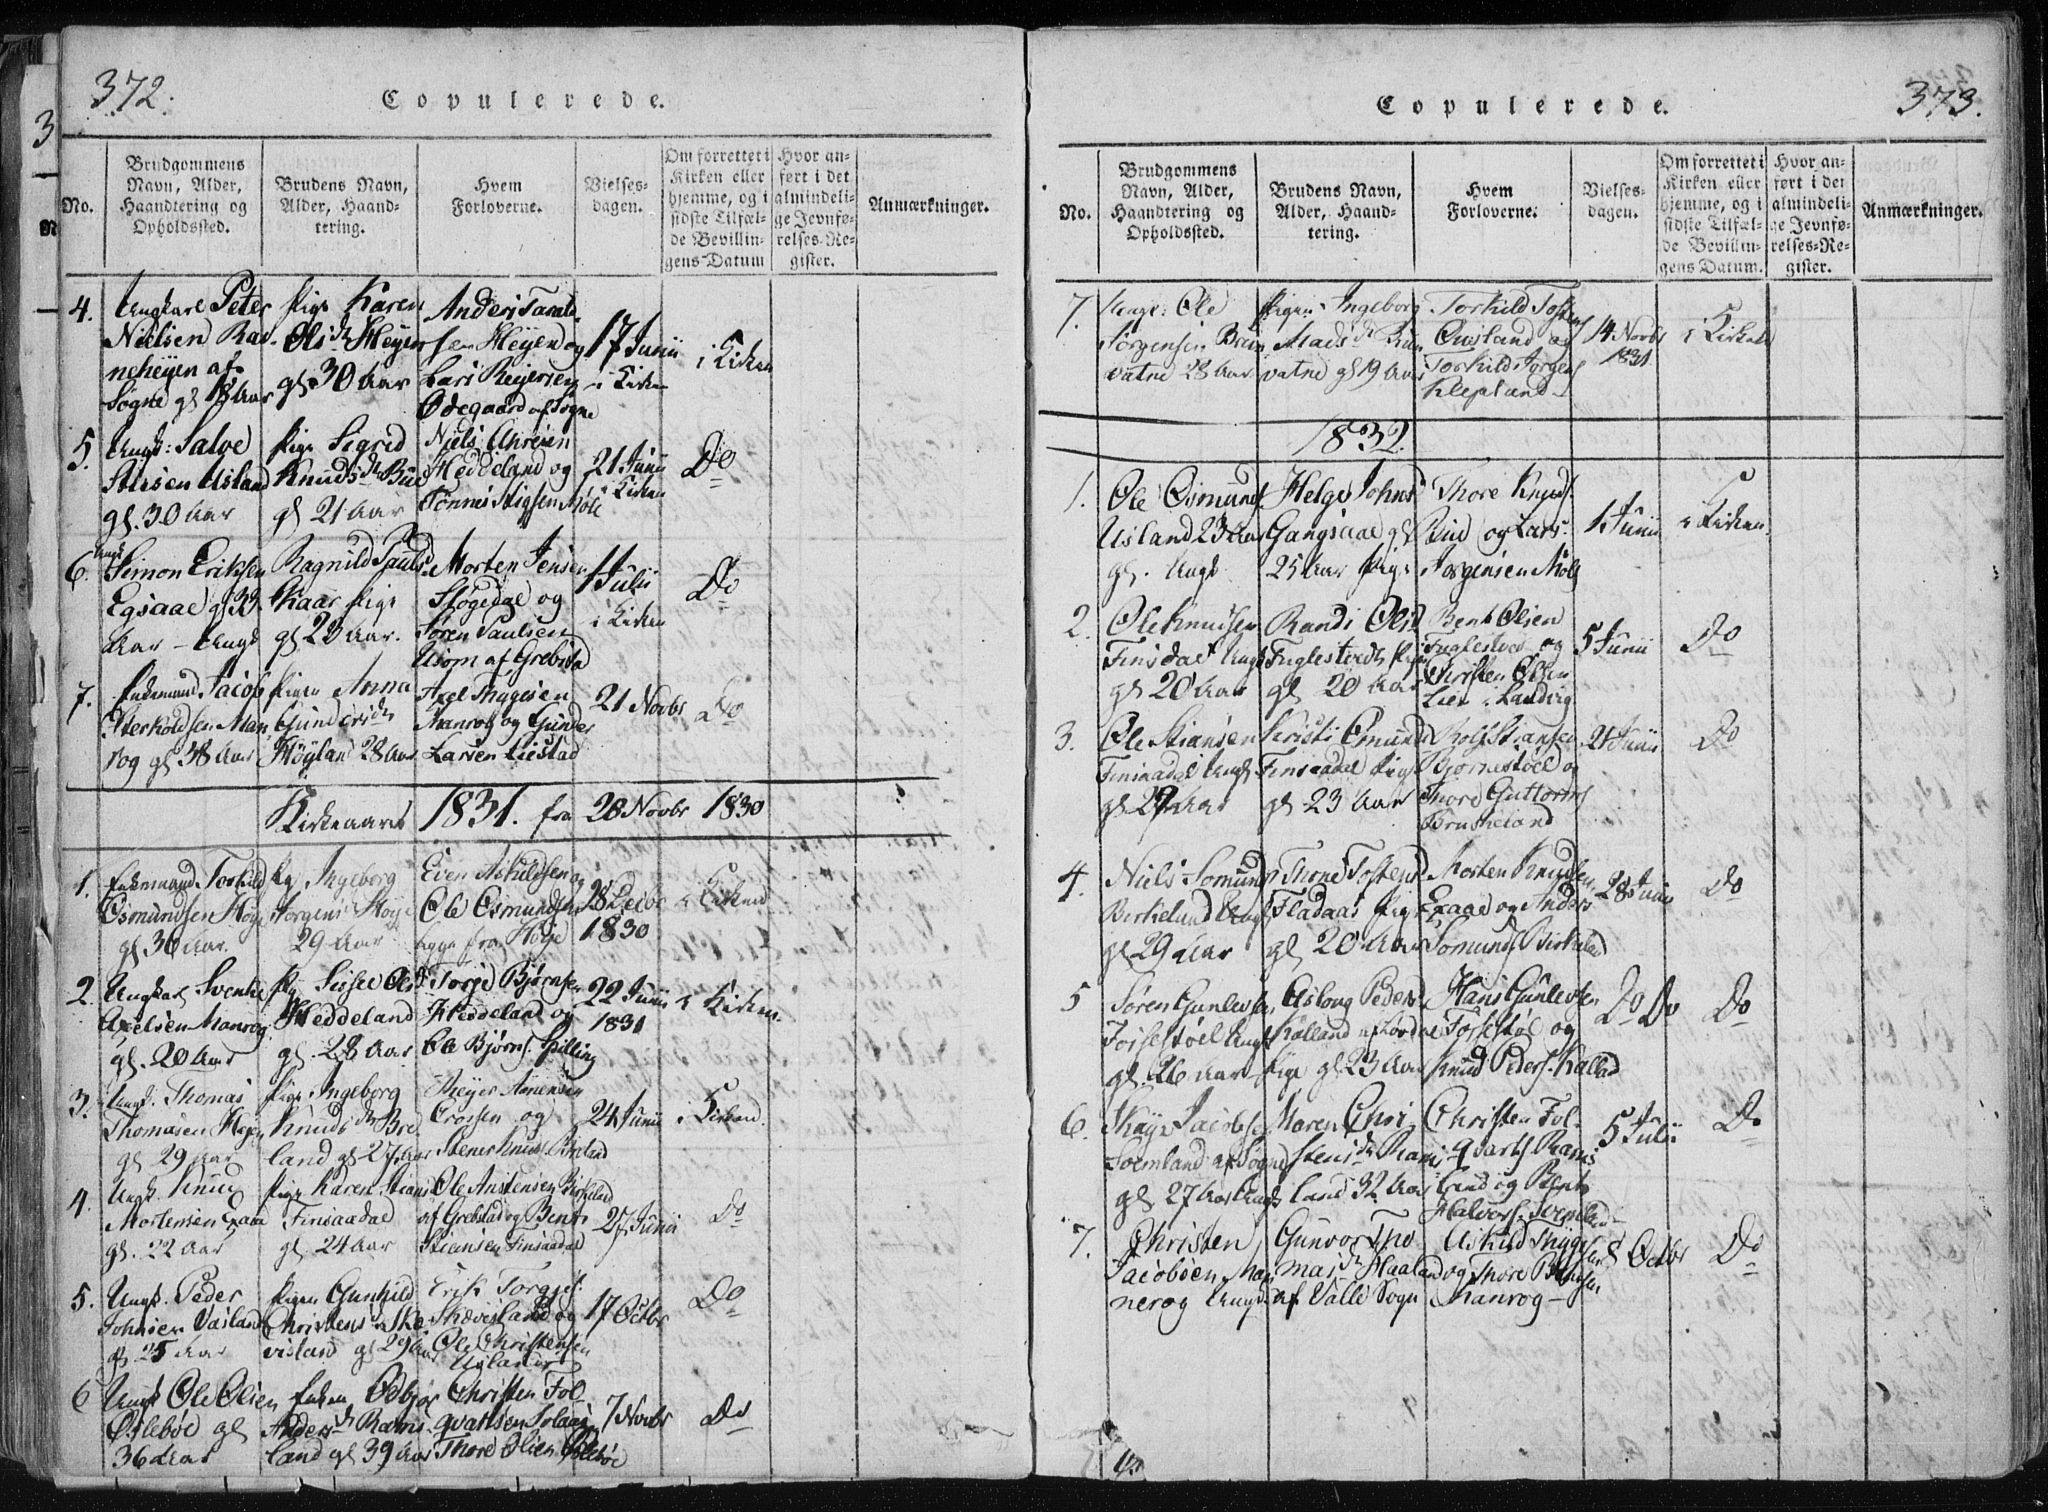 372.
Copulerede.
No.
Brudgommens
Navn, Alder,
Haandtering og
Opholdssted.
Brudens Navn,
Alder, Haand-
tering.
Hvem
Forloverne.
Vielses-
dagen.
Om forrettet i
Kirken eller
hjemme, og i
sidste Tilfæl-
de Bevillin-
gens Datum
Hvor an-
ført i det
almindeli-
ge Jevnfø-
relses-Re-
gister.
Anmærkninger.
4.
Ungkarl Peter
Nielsen Ras-
neheyen af
Sogne gl 18 Aar
Pige Karen
Olsdr Heyen
gl. 30 Aar
Anders Taral-
sen Heyen og
Lars Reyersen
Ødegaard af Sogne
17 Junii
i Kirken
i Kirken
5.
Ungk: Salve
Usland
gl. 30 Aar
Pige Sigrid
Knudsdr Bue
gl 21 Aar
Niels
Heddeland og
Tønnes Stigsen Møll
21 Junii
i Kirken
Do
6.
Ungk
Simon Eriksen
Egsaae gl 33
Aar - Ungk
Ragnild Pauls
Kaar Pige
gl 23 Aar.
Morten Jensen
Støgedal og
Søren Paulsen
Usom af Grebstad
1 Julii
i Kirken
Do
7.
Enkemand Jacob
Man
rog gl 38 Aar
Pigen Anna
Gundersdr
Høyland 28 Aar
Axel Thygesen
Manrog og Gunder
Larsen Liestad
21 Novbr
Do
Kirkeaaret 1831. fra 28 Novbr 1830
1.
Enkemand Torkild
Osmundsen Høye
gl 30 Aar.
Pg Ingeborg
Jørgens Høye
29 Aar
Even Askildsen og
Ole Osmundsen
begge fra Høje
28 Decbr
1830
i Kirken
2.
Ungkarl Svenke
Axelsen Manrog
gl. 20 Aar
Pig Sissel Olsd
Heddeland
gl. 28 Aar
Torje Bjørnsen
Heddeland og
Ole Bjørns. Spilling
22 Junii
1831
i Kirken
3.
Ungk. Thomas
Thomasen Hejen
gl 29 aar
Pige Ingeborg
Knudsdr Bre
land gl 27 Aar
Theyes
og
Steners Knuds. Breland
24 Junii
i Kirken.
4.
Ungk. Knud
Mortensen Exaae
gl. 22 Aar
Pige Karen Stians
Finsaadal
gl 24 aar
Ole Anstensen Birkeland
af Grebstad og Bent
Stiansen Finsaadal
25 Junii
Do
5.
Ungk. Peder
Johnsen Vasland
gl 25 Aar
Pigen Gunhild
Christens Ske
visland gl 29 Aar
Erik Torgjs.
Skævesland og
Ole Christensen
17 Octbr
Do
6
Ungk Ole Olsen
Øslebøe gl
36 Aar
Enken Odbjør
Andersdr Rams
land gl 39 Aar
Christen Fol
qvartsen Solaas
Thore Olsen Øslebøe
7 Novbr
Do
373.
Copulerede.
No.
Brudgommens
Navn, Alder,
Haandtering og
Opholdssted.
Brudens Navn,
Alder, Haand-
tering.
Hvem
Forloverne.
Vielses-
dagen.
Om forrettet i
Kirken eller
hjemme, og i
sidste Tilfæl-
de Bevillin-
gens Datum.
Hvor an-
ført i det
almindeli-
ge Jevnfø-
relses-Re-
gister.
Anmærkninger.
7.
Ungk: Ole
Jørgensen Brun
vatne 28 Aar
Pigen Ingeborg
Madsdr Brun
vatne gl 19 Aar
Torkild Tostens
Ousland og
Torkild Jørgens
Klepland
14 Novbr
1831
i Kirken
1832.
1.
Ole Osmunds
Usland 23 Aar
gl. Ungk
Helge Johns
Gangsaae gl
25 Aar Pige
Thore Knuds.
Bue og Lars
Jørgensen Moll
1. Junii
i Kirken
2.
Ole Knudsen
Finsdal Ungk
gl 20 Aar
Randi Olsd
Fuglestvedt Pige
gl 20 Aar
Bent Olsen
Fuglestved og
Christen Olsen
Lien i Landvig
5 Junii
Do
3.
Ole Stiansen
Finsaadal Ungk
gl 27 Aar
Kristi Omunds
Finsaadal Pige
gl 23 Aar
Rolf Stiansen
Bjørnestøel og
Thore Guttorms
Bruskeland
21 Junii
Do
4.
Niels Somunds
Birkeland Ungk
gl 29 Aar
Thone Tostens
Fladaas Pige
gl 20 Aar
Morten Knudsen
Exaae og Anders
Somunds Birkeland
28 Junii
Do
5
Søren Gunlevsen
Fossestøel Ungk
gl. 26 Aar
Asloug Peders
Kalland
Pige gl 23 Aar
Hans Gunlevsen
Fossestøl og
Knud Peders. Kalland
Do Do
Do
6.
Jacobsen
af Sogne
gl 27 Aar Ungk
Maren Chri
stensdr Rams
land 32 Aar
Christen Fol-
qvarts Rams
land og Bent
Halvors.
5 Julii
Do
7.
Christen
Jacobsen Man
nerog Ungk.
Gunvor Tho
masdr Haaland
af Valle Sogn
Askild Thyges
og Thore Bentsen
Manrog
8 Octbr
Do